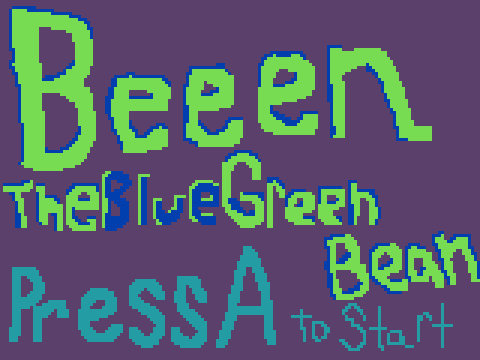 Beeen
The Blue Green
Bean
Press A to Start